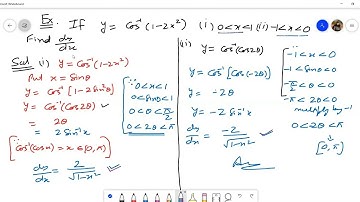 Ex. If y = Cos⁻¹(1-2x²) (i) 0<x<1 (ii) -1<x<0
Find dy/dx
Sol (i) y = Cos⁻¹(1-2x²)
Put x = Sinθ
y = Cos⁻¹(1-2Sin²θ)
y = Cos⁻¹(Cos2θ)
= 2θ
= 2 Sin⁻¹x
[Cos⁻¹(Cosx) = x ∈ [0,π]
dy/dx = 2/√(1-x²)
∵ 0<x<1
0<Sinθ<1
0<θ<π/2
0<2θ<π
(ii) y = Cos⁻¹(Cos2θ)
y = Cos⁻¹[Cos(-2θ)]
y = -2θ
y = -2 Sin⁻¹x
dy/dx = -2/√(1-x²)
-1<x<0
-1<Sinθ<0
-π/2<θ<0
-π<2θ<0
multiply by -1
0<-2θ<π
[0,π]